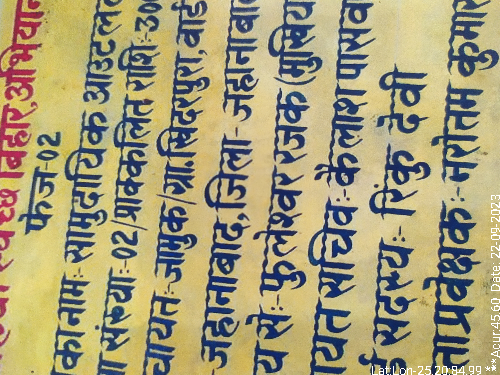 स्वच्छ बिहार अभियान
फेज-02
का नाम:- सामुदायिक आउटलेट
संख्या:-02/प्राक्कलित राशि:-30
चायत:-जामुक/ग्रा.खिदरपुरा, वार्ड
जहानाबाद, जिला- जहानाबा
य से:- फुलेश्वर रजक (मुखिया
ायत सचिव:-कैलाश पासवा
सदस्य:- रिंकु देवी
ता प्रवेक्षक:- नरोतम कुमार
Lat Lon-25.20,84.99 ***Acur:45.60, Date: 22-09-2023